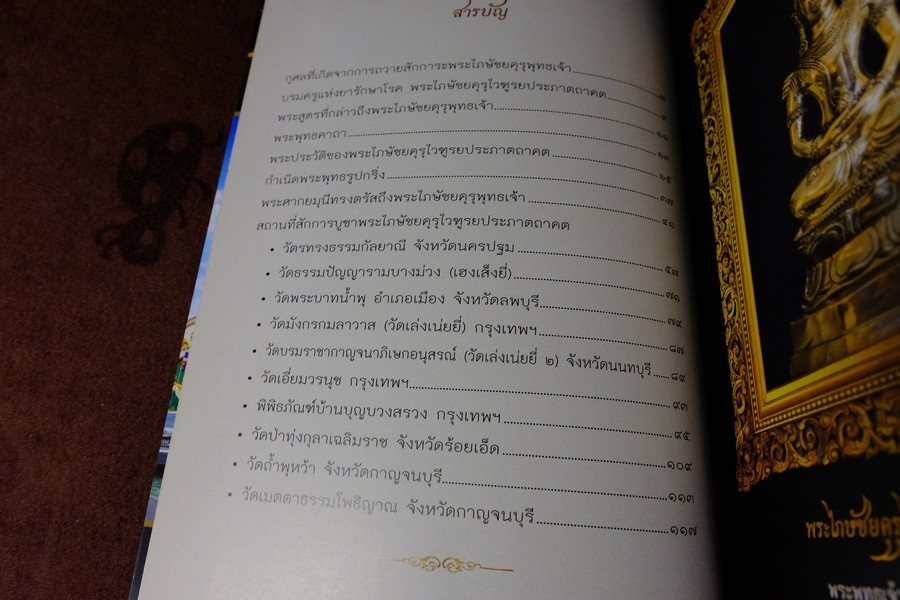 สารบัญ
กุศลที่เกิดจากการถวายสักการะพระไภษัชยคุรุพุทธเจ้า
บรมครูแห่งยารักษาโรค พระไภษัชยคุรุไวฑูรยประภาตถาคต
พระสูตรที่กล่าวถึงพระไภษัชยคุรุพุทธเจ้า
พระพุทธคาถา
พระประวัติของพระไภษัชยคุรุไวฑูรยประภาตถาคต ๑๓
กำเนิดพระพุทธรูปกริ่ง ๑๕
พระศากยมุนีทรงตรัสถึงพระไภษัชยคุรุพุทธเจ้า ๓๗
สถานที่สักการบูชาพระไภษัชยคุรุไวฑูรยประภาตถาคต ๔๑
• วัตรทรงธรรมกัลยาณี จังหวัดนครปฐม ๕๗
• วัดธรรมปัญญารามบางม่วง (เฮงเส็งยี่) ๗๑
• วัดพระบาทน้ำพุ อำเภอเมือง จังหวัดลพบุรี ๗๙
• วัดมังกรกมลาวาส (วัดเล่งเน่ยยี่) กรุงเทพฯ ๘๗
• วัดบรมราชากาญจนาภิเษกอนุสรณ์ (วัดเล่งเน่ยยี่ ๒) จังหวัดนนทบุรี ๘๙
• วัดเอี่ยมวรนุช กรุงเทพฯ ๙๓
• พิพิธภัณฑ์บ้านบุญบวงสรวง กรุงเทพฯ ๙๕
• วัดป่าทุ่งกุลาเฉลิมราช จังหวัดร้อยเอ็ด ๑๐๙
• วัดถ้ำพุหว้า จังหวัดกาญจนบุรี ๑๑๓
• วัดเมตตาธรรมโพธิญาณ จังหวัดกาญจนบุรี ๑๑๗